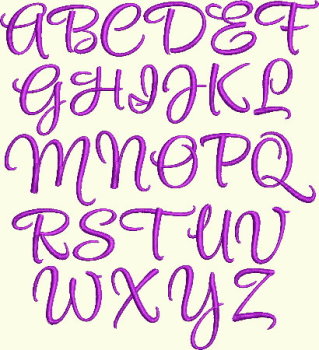 ABCDEF
GHIJKL
MNOPQ
RSTUV
WXYZ